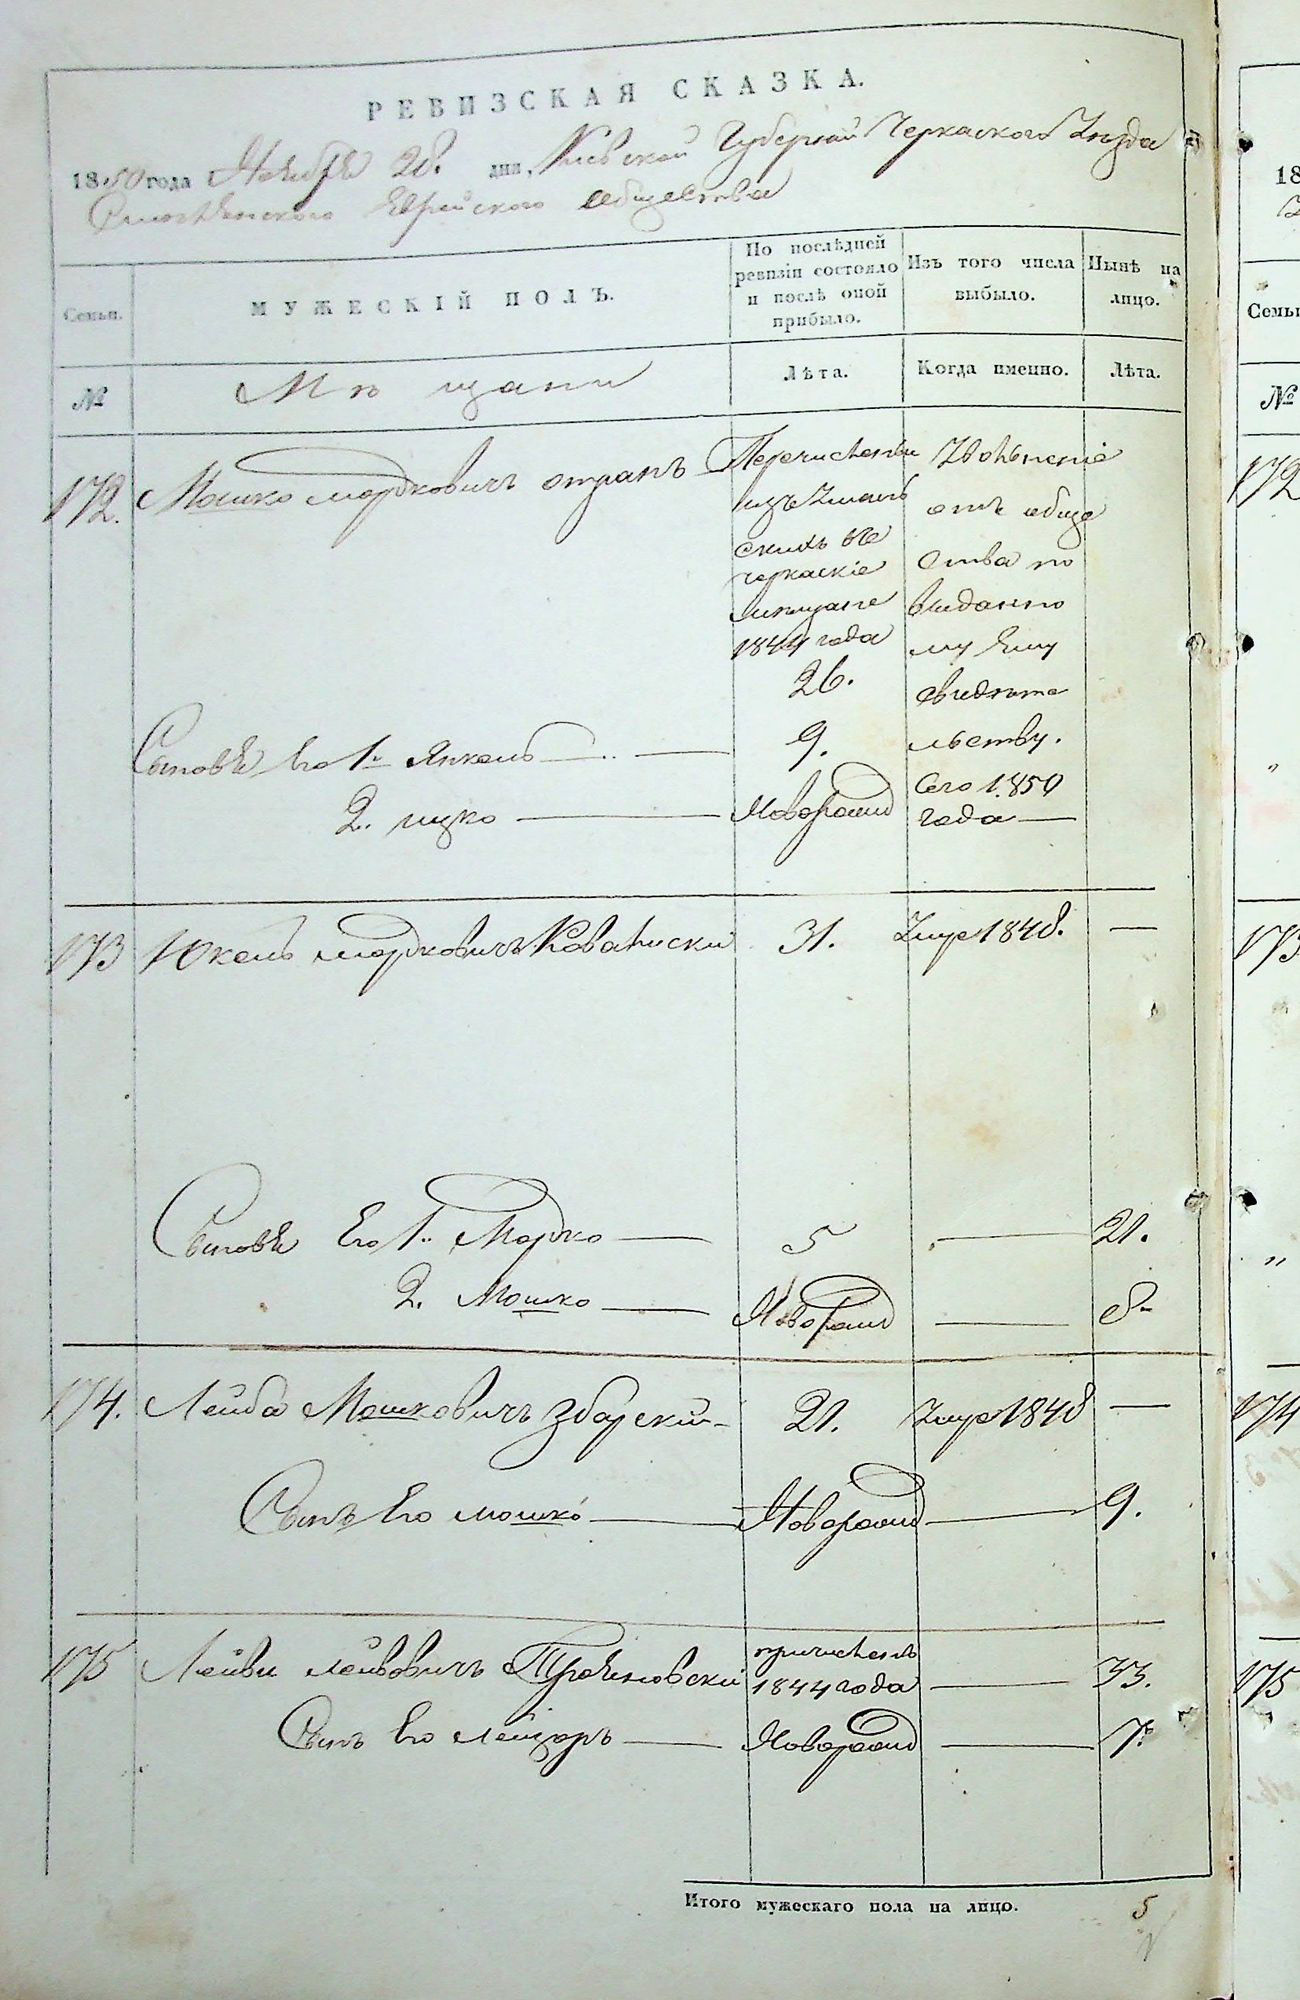 РЕВИЗСКАЯ СКАЗКА.
1850 года Ноября 20. дня, Кіевской Губерніи Черкаского Уезда
Еврейского общества
Семьи.
МУЖЕСКІЙ ПОЛЪ.
По послѣдней ревизіи состояло и послѣ оной прибыло.
Изъ того числа выбыло.
Нынѣ на лицо.
№
Мѣщани
Лѣта.
Когда именно.
Лѣта.
172. Мошко Мордковичъ
Перечисленъ
изъ
скихъ въ
черкаскіе
мещане
1844 года
26.
Уволъненіе
отъ обще
ства по
виданно
му Ему
свидѣте
льству.
Сего 1850
года —
Сыновя Его 1. Янкель — 9.
2. Ицко — Новорожд
173 Юкель Мордковичъ Ковалиски 31. Умре 1848. —
Сыновя Его 1. Мордко — 5 — 21.
2. Мошко — Новорожд — 8
174. Лейба Мошковичъ Збарский 21. Умре 1848 —
Сынъ Его Мошко — Новорожд — 9.
175 Лейви Лейвовичъ
причисленъ
1844 года — 33.
Сынъ Его Лейзоръ — Новорожд — 7.
Итого мужескаго пола на лицо. 5
18
Семьи
№
172
173
174
175